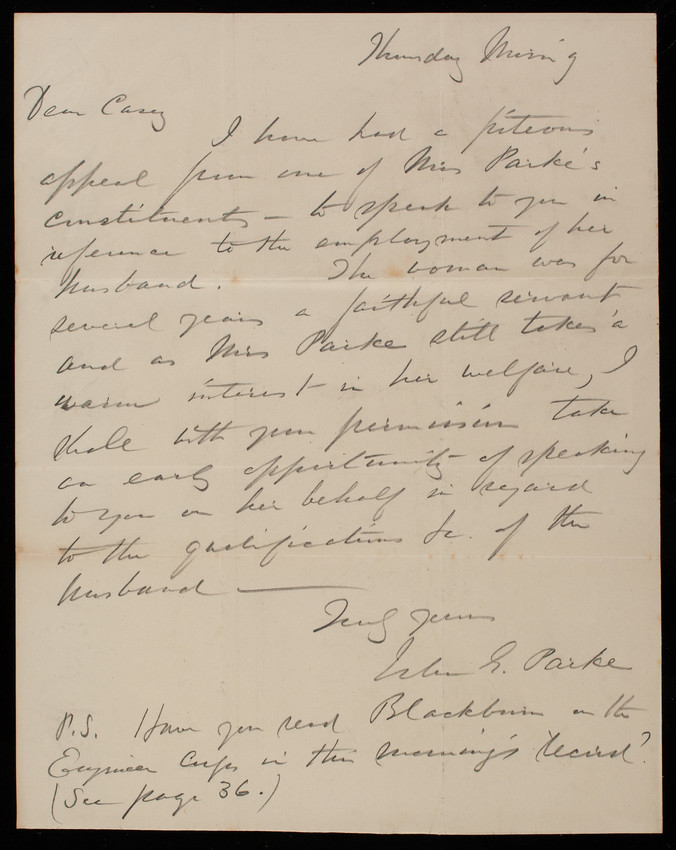 Thursday Morning
Dear Casey
I have had a piteous
appeal from one of Mrs Parke's
constituents — to speak to you in
reference to the employment of her
husband. The woman was for
several years a faithful servant
and as Mrs Parke still takes a
warm interest in her welfare, I
shall with your permission take
an early opportunity of speaking
to you on her behalf in regard
to the qualifications &c. of the
husband —
Truly yours
John G. Parke
P.S. Have you read Blackburn on the
Engineer Corps in this morning's Record?
(See page 36.)